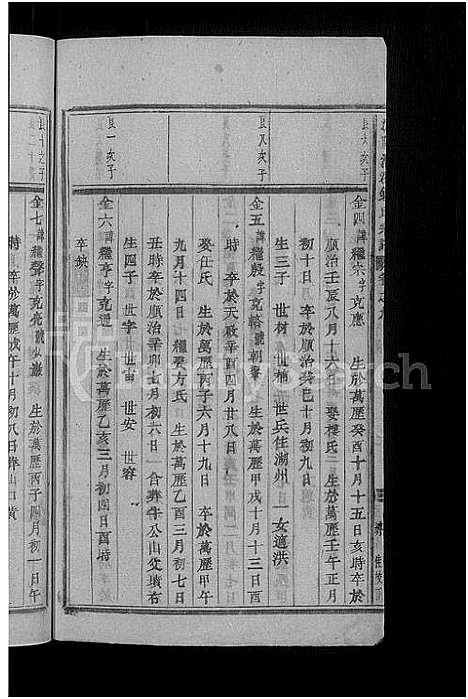 金四 諱 字克應 生於萬歷癸酉十月十五日亥時卒於
順治壬辰八月十六 娶樓氏 生於萬歷壬午正月
初十日 卒於順治癸巳十月初九日
生三子 世材 世楠 世兵住湖州 一女適洪
金五 諱 殷字克 號朝 生於萬歷甲戌十月十三日酉
時 卒於天啟辛酉四月廿八日
娶仕氏 生於萬歷丙子六月十九日 卒於萬歷甲午
九月十四日 繼娶方氏 生於萬歷乙酉三月初七日
丑時卒於順治辛卯七月初六日 合葬牛公山父墳右
生四子 世字 世宙 世安 世容
金六 諱 字克道 生於萬歷乙亥三月初四日酉時
卒缺
金七 諱 聲字克亮號 生於萬歷丙子四月初一日午
時 卒於萬歷戊午十月初八日葬山口黄